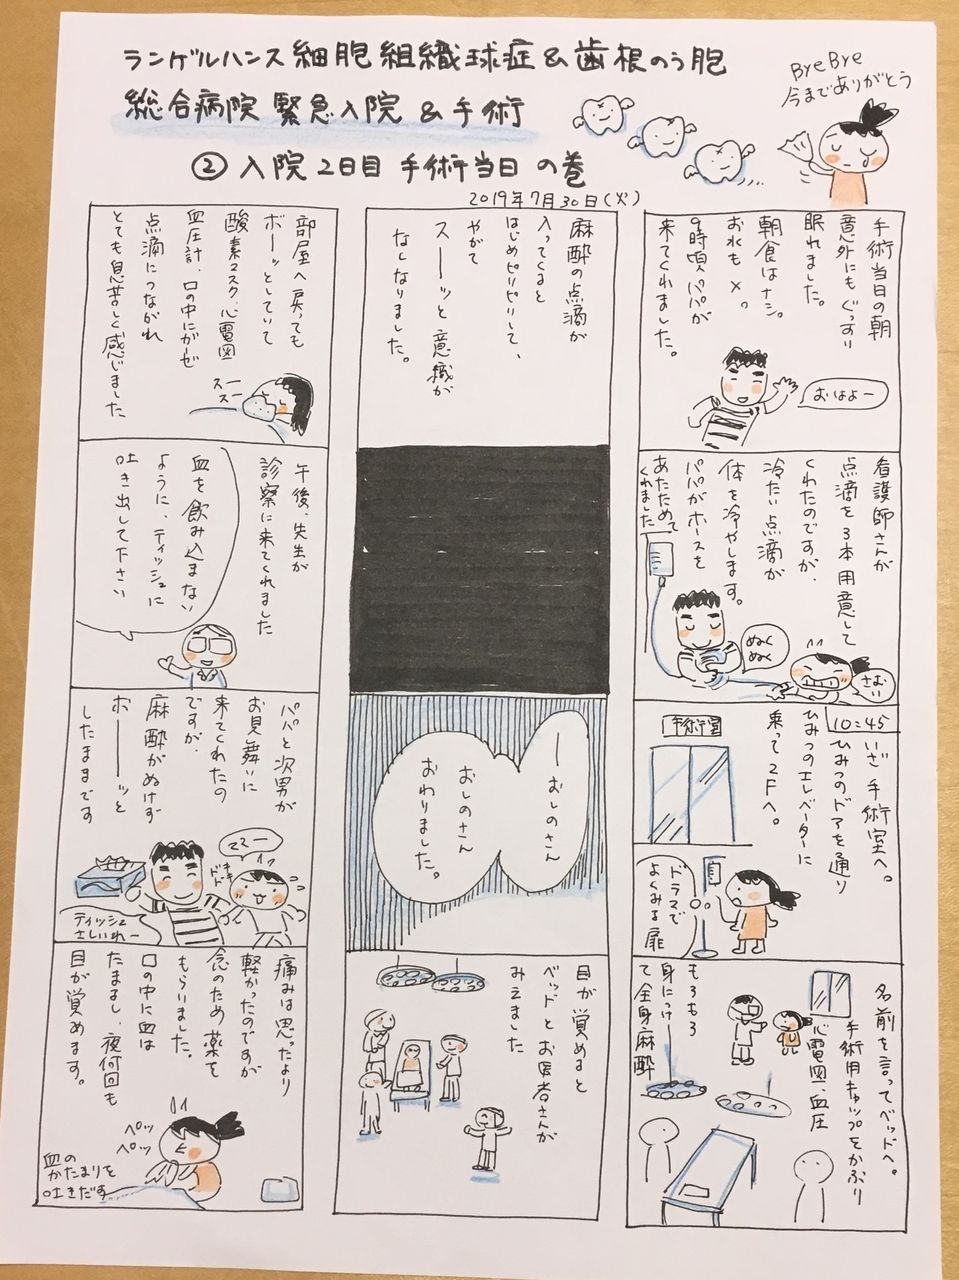 ランゲルハンス細胞組織球症&歯根のう胞
総合病院 緊急入院 & 手術
② 入院2日目 手術当日 の巻
2019年7月30日(火)
ByeBye
今までありがとう
手術当日の朝
意外にもぐっすり
眠れました。
朝食はナシ。
お水も×。
9時頃、パパが
来てくれました。
おはよー
看護師さんが
点滴を3本用意して
くれたのですが、
冷たい点滴が
体を冷やします。
パパがホースを
あたためて
くれました
ぬく
ぬく
さむい
10:45
いざ手術室へ。
ひみつのドアを通り
ひみつのエレベーターに
乗って2Fへ。
手術室
ドラマで
よくみる扉
名前を言ってベッドへ。
手術用キャップをかぶり
心電図、血圧
もろもろ
身につけ
て全身麻酔
麻酔の点滴が
入ってくると
はじめピリピリして、
やがて
スーーッと意識が
なくなりました。
ーおしのさん
おしのさん
おわりました。
目が覚めると
ベッドとお医者さんが
みえました
部屋へ戻っても
ボーッとしていて
酸素マスク、心電図
血圧計、口の中にガーゼ
点滴につながれ
とても息苦しく感じました
スー
スー
午後、先生が
診察に来てくれました
血を飲み込まない
ように、ティッシュに
吐き出して下さい
パパと次男が
お見舞いに
来てくれたの
ですが、
麻酔がぬけず
ボーーーッと
したままです
ママー
ドキ
ドキ
ティッシュ
さしいれー
痛みは思ったより
軽かったのですが
念のため薬を
もらいました。
口の中に血は
たまるし、夜何回も
目が覚めます。
ペッ
ペッ
血の
かたまりを
吐きだす